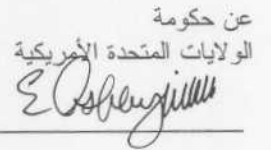 عن حكومة
الولايات المتحدة الأمريكية